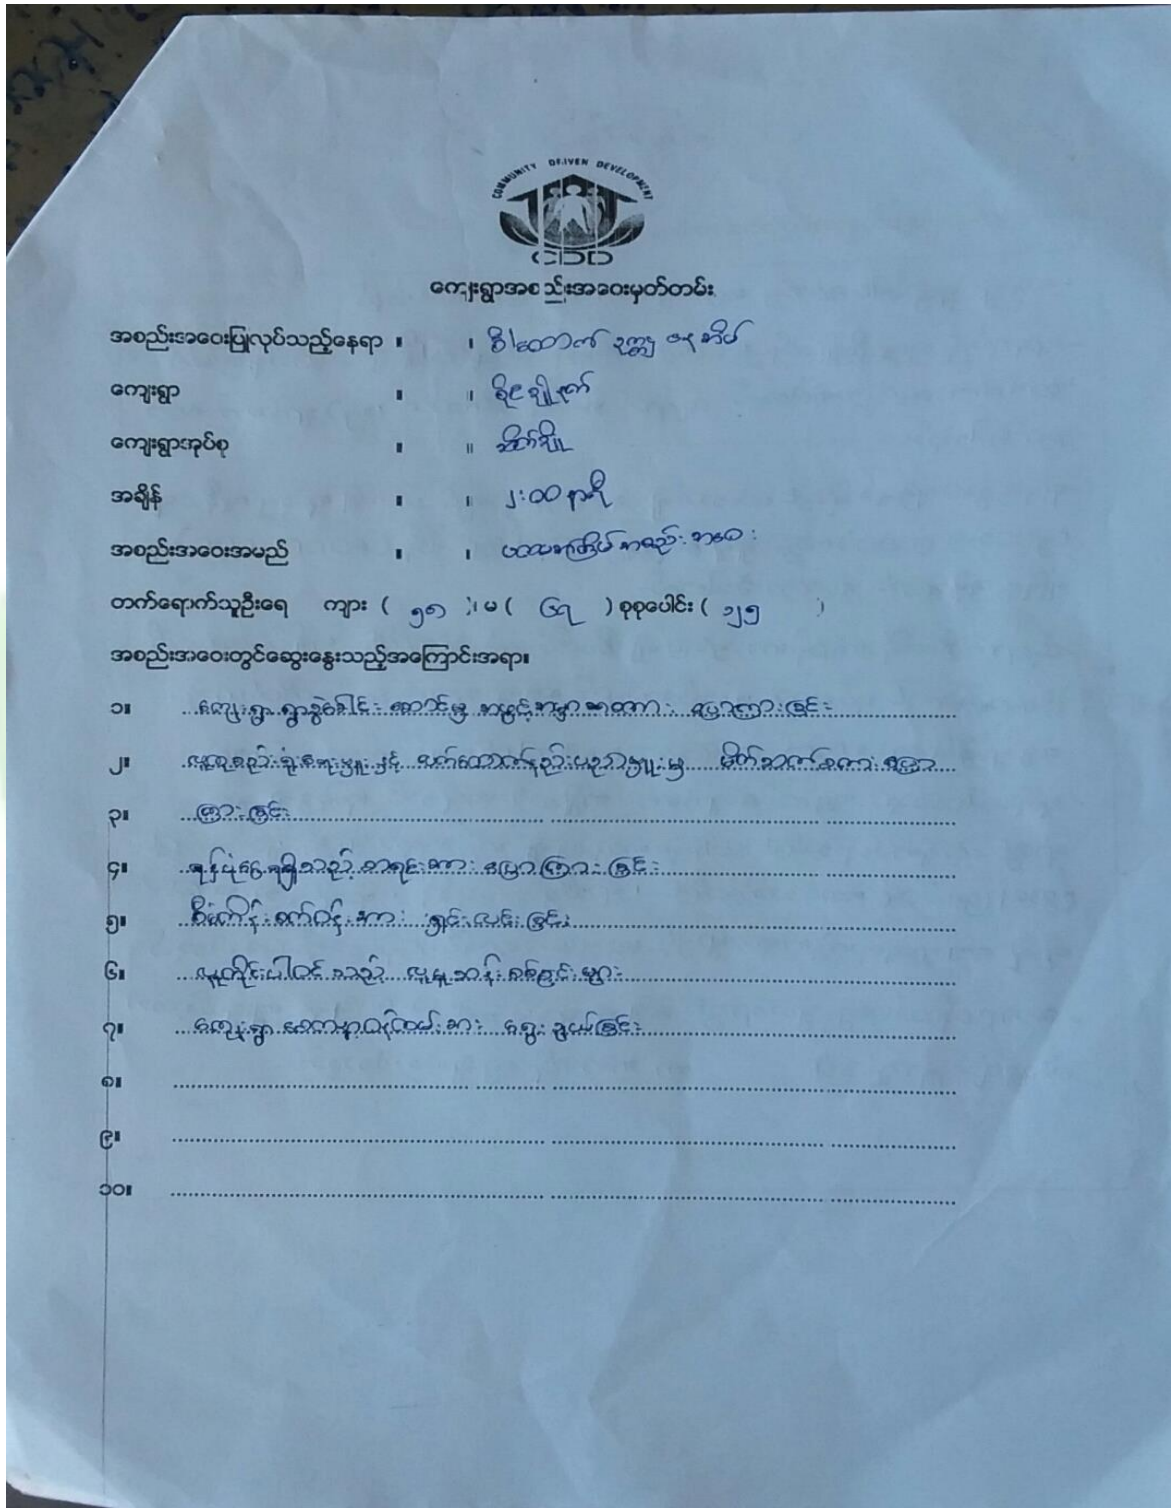 COMMUNITY DRIVEN DEVELOPMENT
CDD
ကျေးရွာအစည်းအဝေးမှတ်တမ်း
အစည်းအဝေးပြုလုပ်သည့်နေရာ ။ ။ စီ/ထောက် ဥက္ကဋ္ဌ နေအိမ်
ကျေးရွာ ။ ။
ကျေးရွာအုပ်စု ။ ။ အိတ်ချို
အချိန် ။ ။ ၂:၀၀ နာရီ
အစည်းအဝေးအမည် ။ ။ ပထမအကြိမ် အစည်းအဝေး
တက်ရောက်သူဦးရေ ကျား ( ၅၈ )၊ မ ( ၆၇ ) စုစုပေါင်း ( ၁၂၅ )
အစည်းအဝေးတွင်ဆွေးနွေးသည့်အကြောင်းအရာ။
၁။ ကျေးရွာ ရွာခွဲခေါင်းဆောင်မှ အဖွင့်အမှာစကား ပြောကြားခြင်း
၂။ လူထုစည်းရုံးရေးမှူးနှင့် လက်ထောက်နည်းပညာမှူးမှ မိတ်ဆက်စကားပြော
၃။ ကြားခြင်း
၄။ ရန်ပုံငွေရရှိသည့်စာရင်းအား ပြောကြားခြင်း
၅။ စီမံကိန်းစက်ဝန်းအား ရှင်းလင်းခြင်း
၆။ လူတိုင်းပါဝင်သည့် လူမှုဆန်းစစ်ခြင်းများ
၇။ ကျေးရွာစေတနာ့ဝန်ထမ်းအား ရွေးချယ်ခြင်း
၈။
၉။
၁၀။